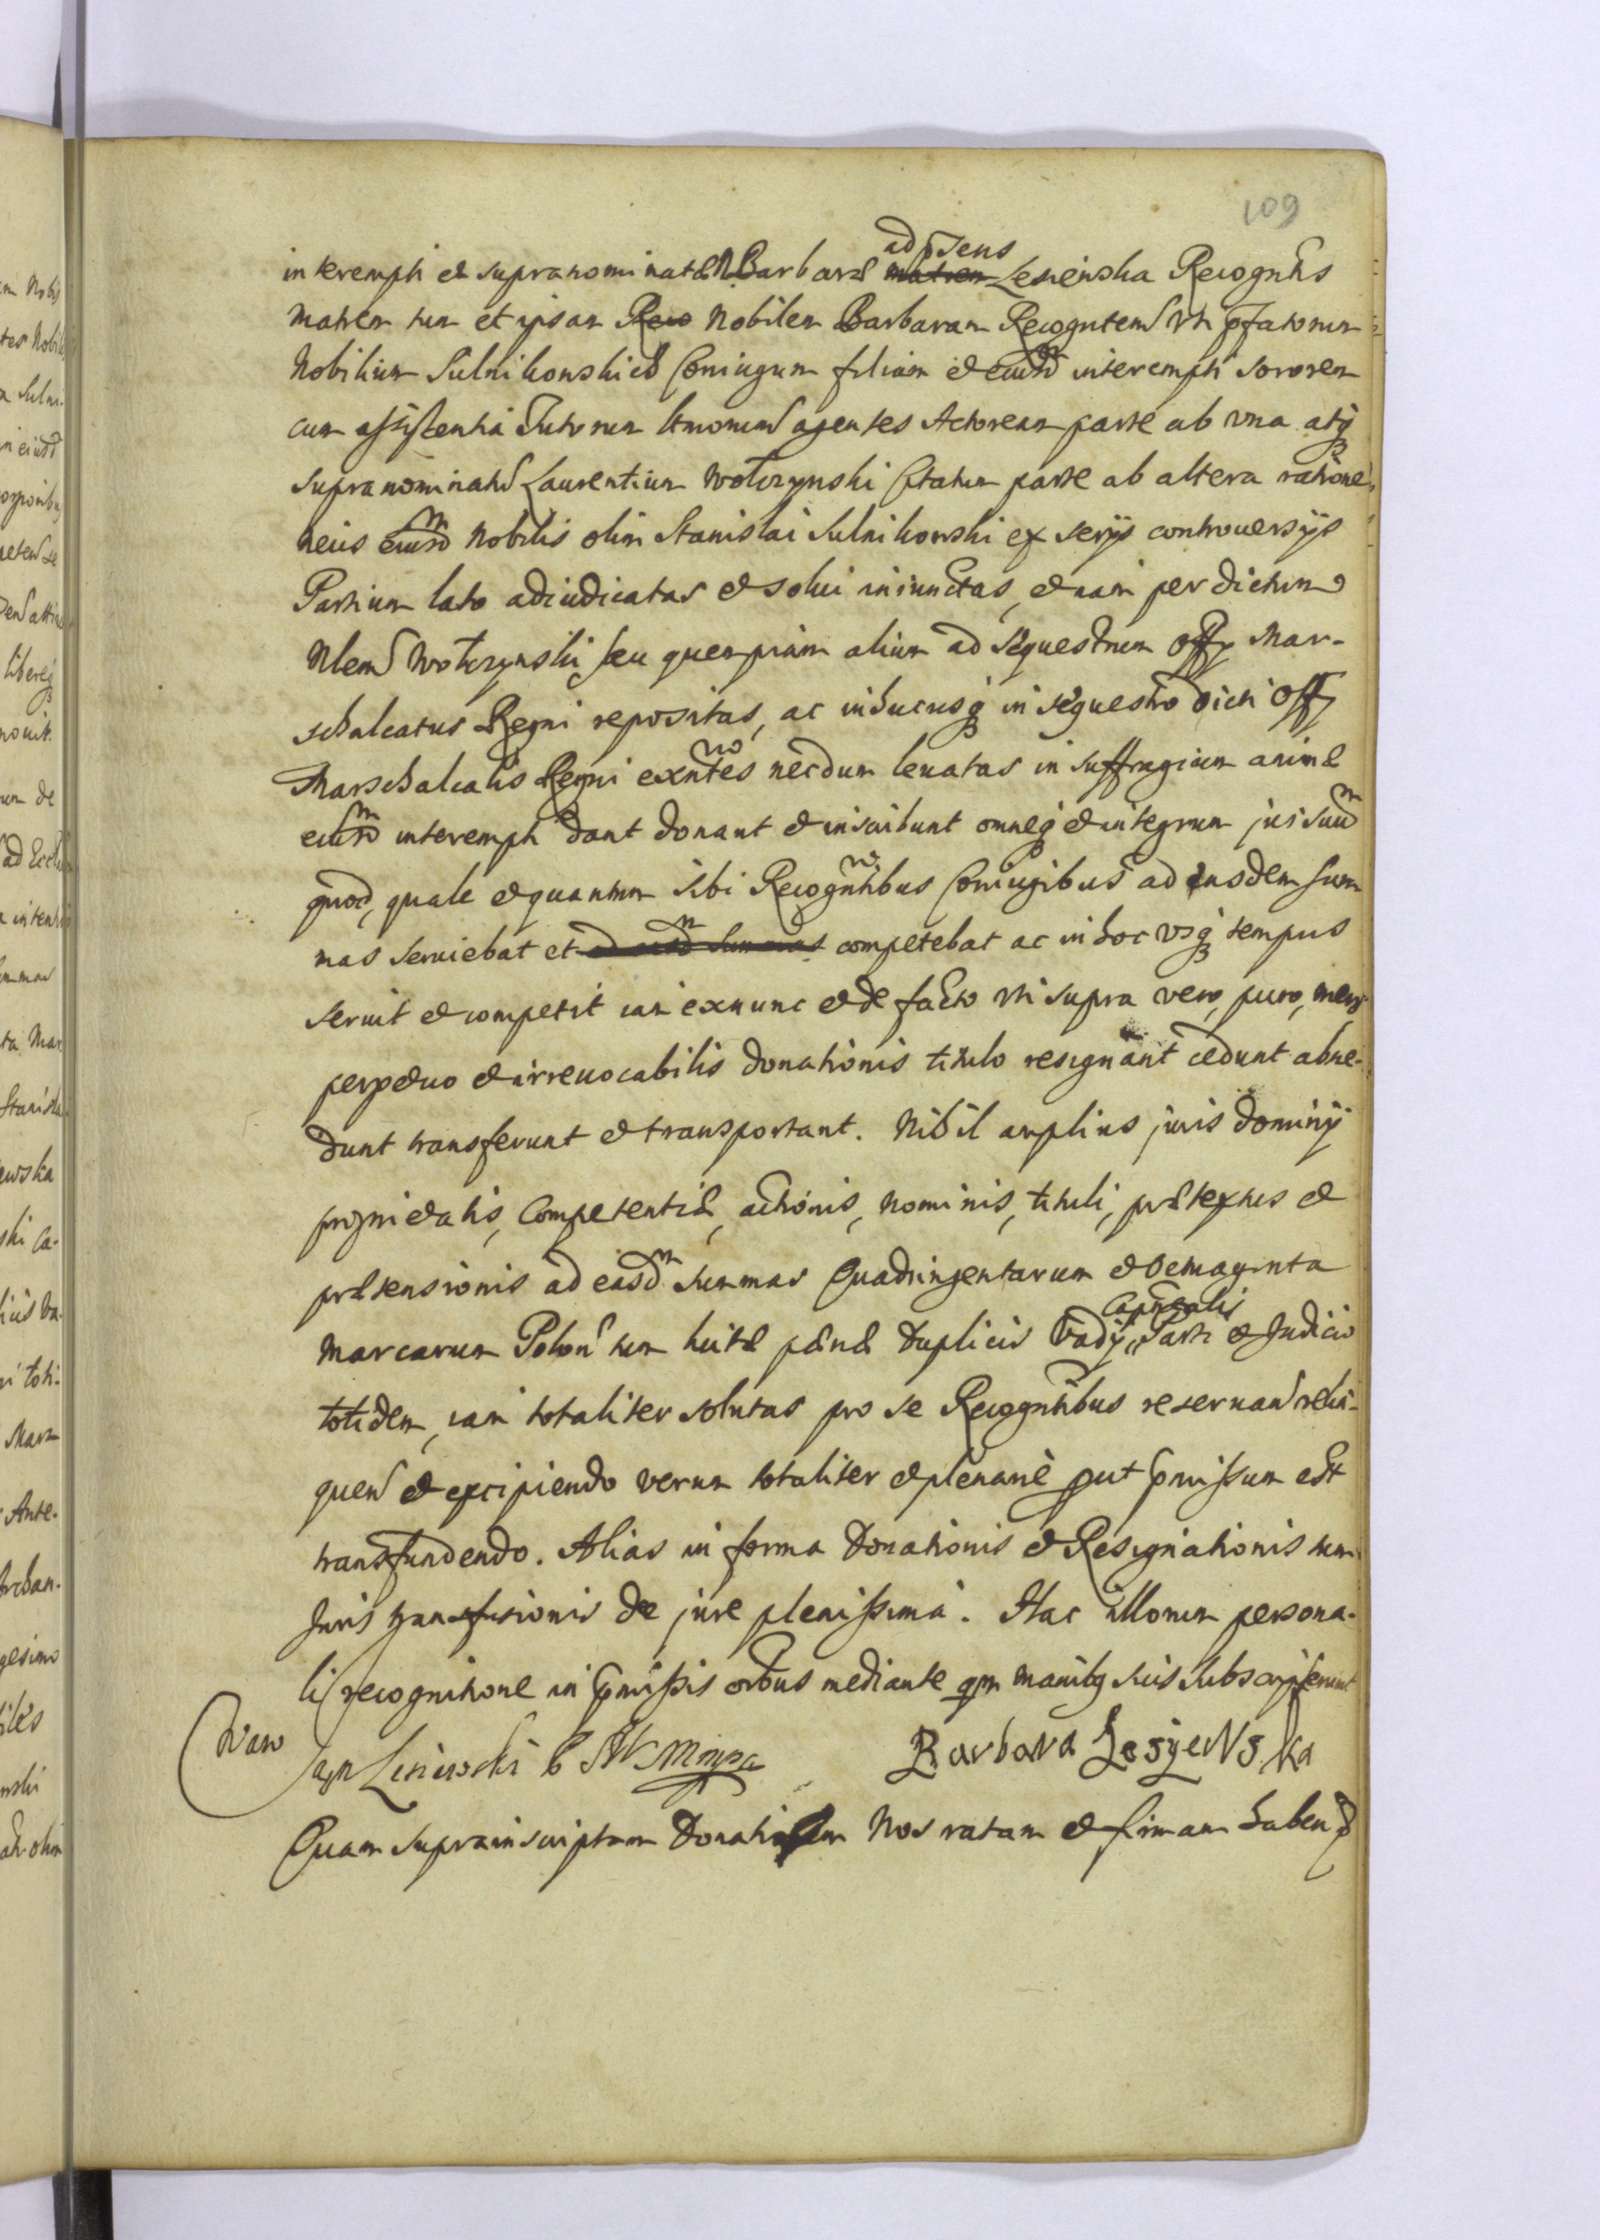 109
interempti et supranominatæ N. Barbaræ matrem ad psens Lesiewska Recogntis
matrem tum et ipsam Reco Nobilem Barbaram Recogntem uti pfatorum
Nobilium Sulnikowskich Coniugum filiam et eiusdm interempti sororem
cum assistentia Tutorum agentes Actoream parte ab una atq
supranominatu Laurentium Wolczynski Citatum parte ab altera ratione
necis eiusdm Nobilis olim Stanislai Sulnikowski ex serijs controuersijs
Partium lato adiudicatas et solui iniunctas, et iam per dictum
Nlem Wolczynski seu quempiam alium ad sequestrum Offy Mar-
schalcatus Regni repositas, ac inhucusq in sequestro dicti Offy
Marschalcalis Regni exntes necdum leuatas in suffragium animæ
eiusdm interempti dant donant et inscribunt omneq et integrum jus suum
quod, quale et quantum sibi Recogntibus Coniugibus ad easdem sum
mas seruiebat et ad easdm summas competebat ac in hoc usq tempus
seruit et competit iam exnunc et de facto uti supra vero, puro, mero
perpetuo et irreuocabilis donationis titulo resignant cedunt abne-
dunt transferunt et transportant. Nihil amplius juris dominij
proprietatis, Competentiæ, actionis, nominis, tituli, prætextus et
prætensionis ad easdm summas Quadringentarum et Octuaginta
Marcarum Polon tum luitæ pænæ duplicis Vadij, Capnealis Parti et Judicio
totidem, iam totaliter solutas pro se Recogntibus reseruand relin-
quen et excipiendo verum totaliter et plenariè put pmissum est
transfundendo. Alias in forma Donationis et Resignationis tum
Juris transfusionis de jure plenissima. Hac illorum persona-
li recognitione in pmissis orbus mediante qm manibq suis subscripserunt
Jan Lesiewski b S W Mmpa Barbara LesyeWska
Quam suprainscriptam Donationem Nos ratam et firmam haben